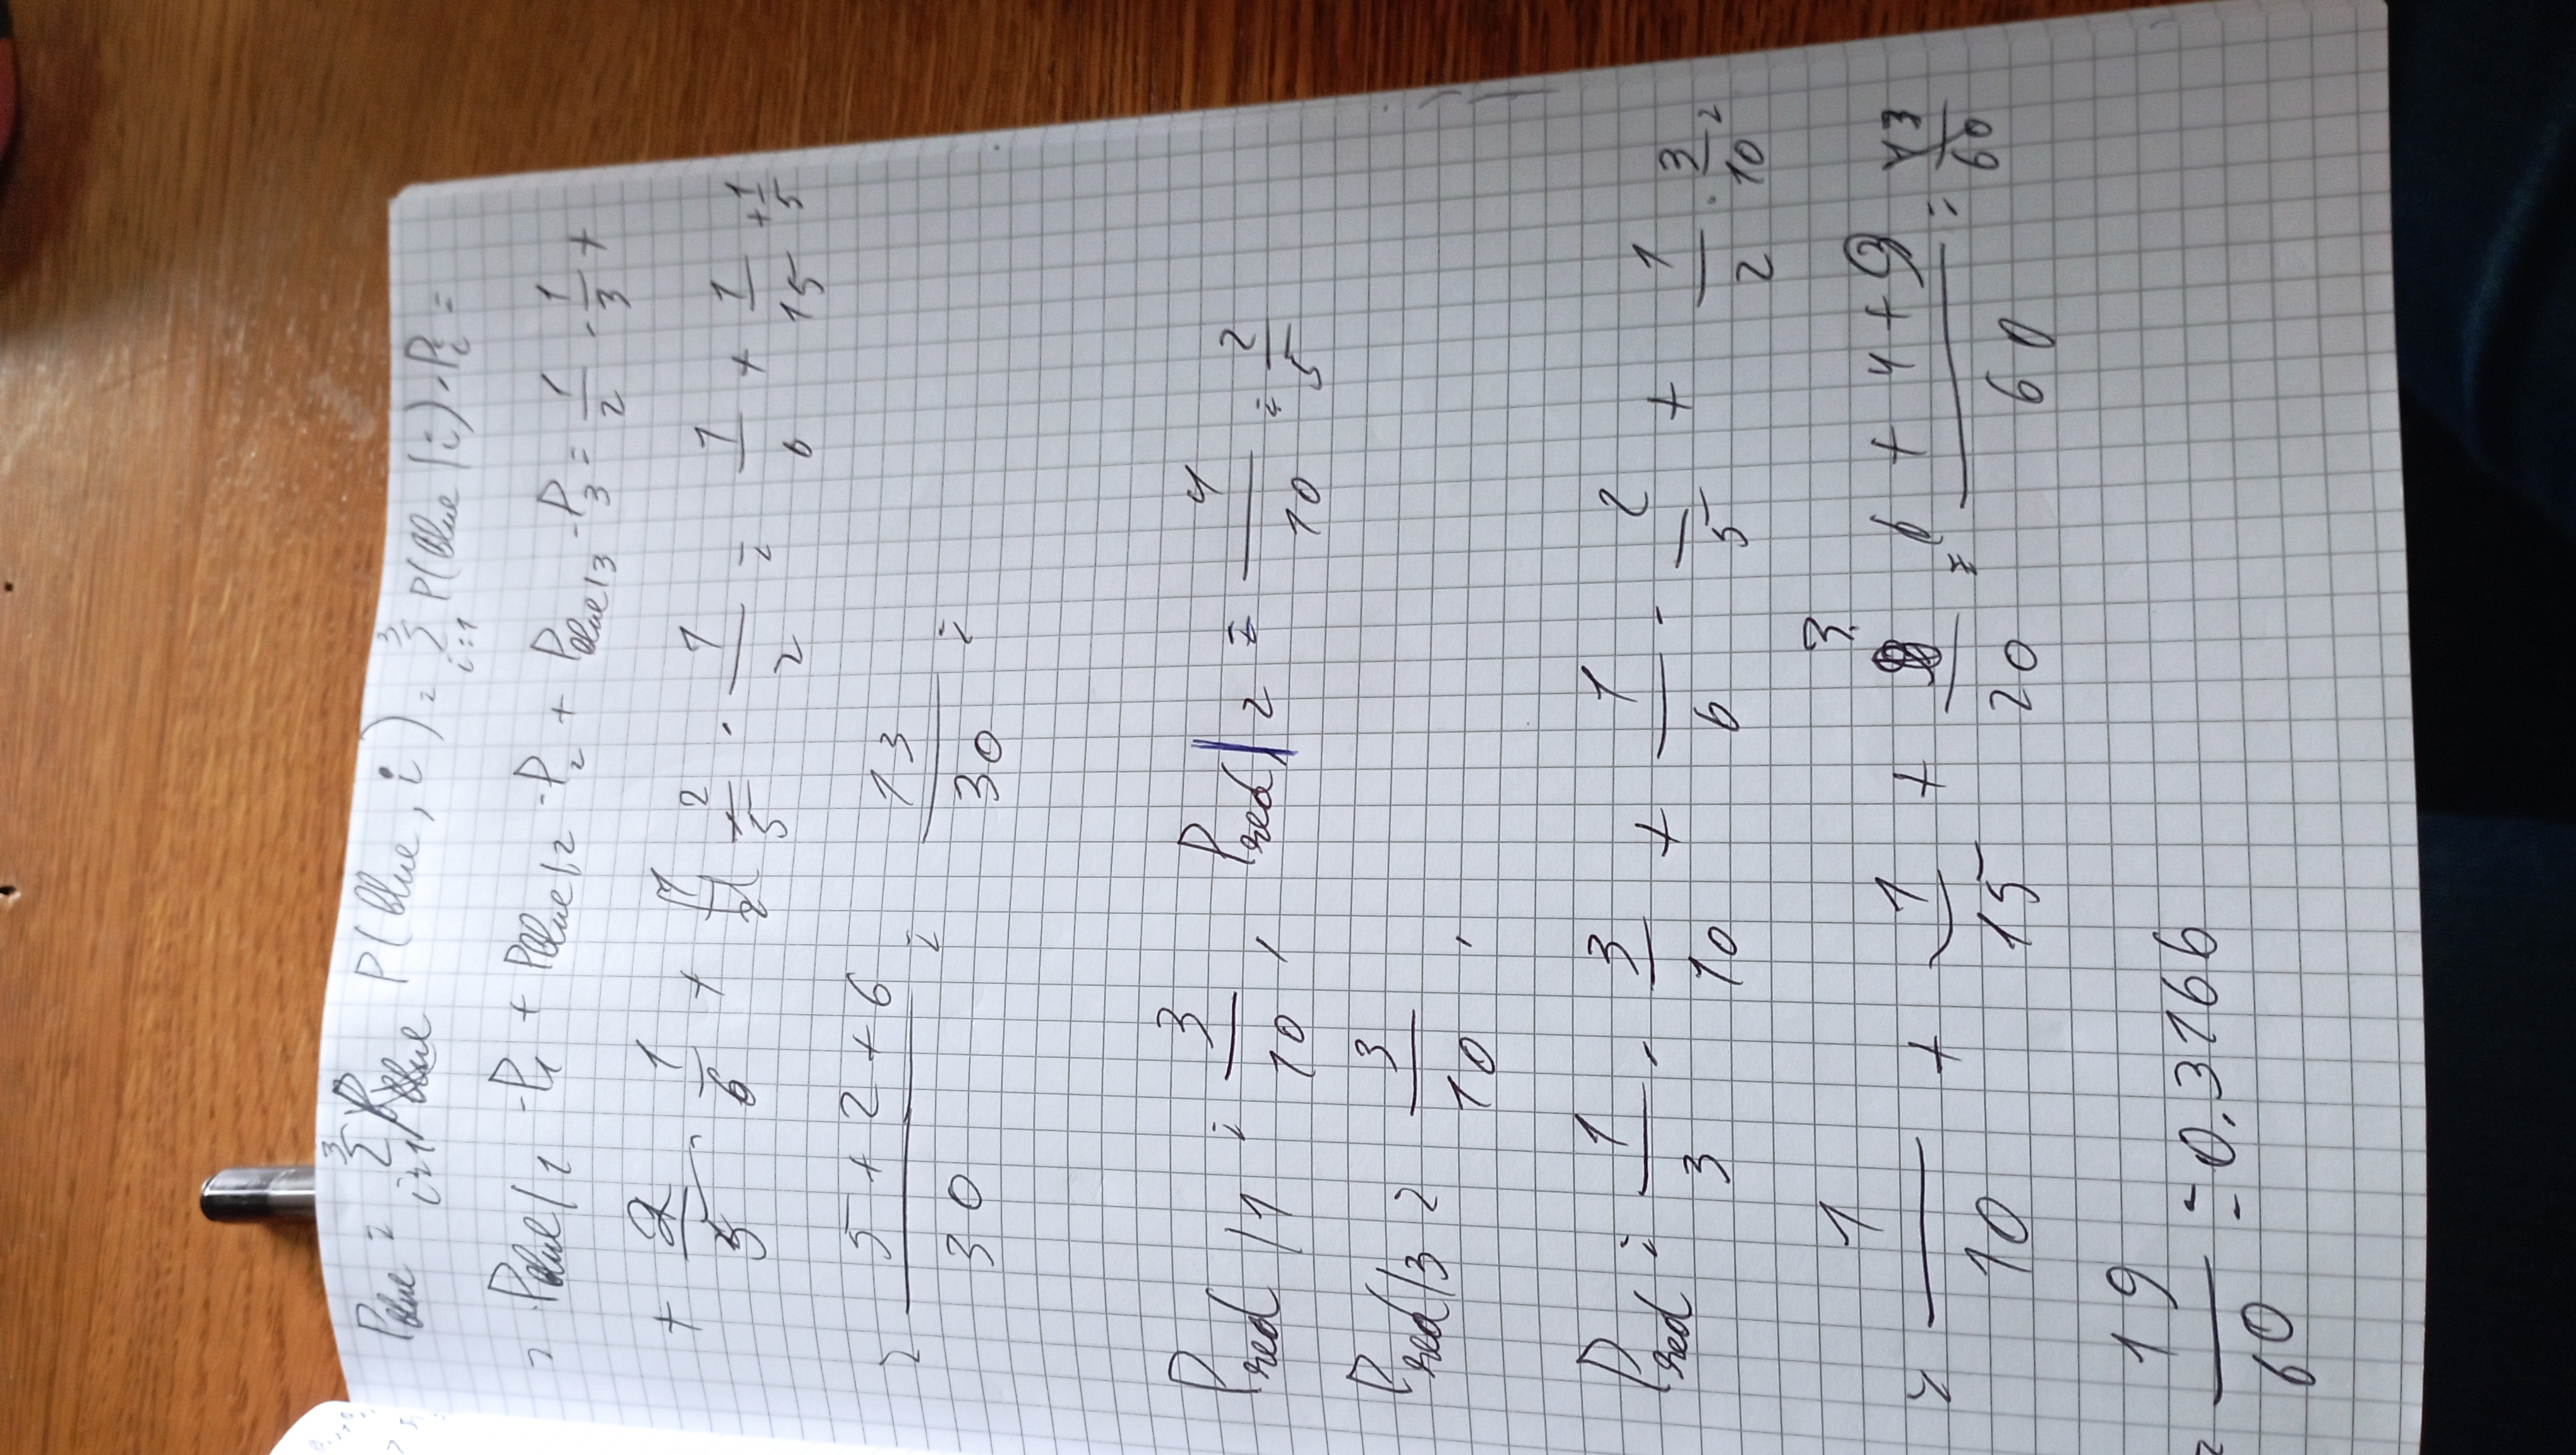 P_blue = Σ_{i=1}^{3} P(blue, i) = Σ_{i=1}^{3} P(blue | i) · P_i =
= P_blue|1 · P_1 + P_blue|2 · P_2 + P_blue|3 · P_3 = 1/2 · 1/3 +
+ 2/5 · 1/6 + 2/5 · 1/2 = 1/6 + 1/15 + 1/5
= (5 + 2 + 6)/30 = 13/30 =
P_red|1 = 3/10 , P_red|2 = 4/10 = 2/5
P_red|3 = 3/10 ,
P_red = 1/3 · 3/10 + 1/6 · 2/5 + 1/2 · 3/10 =
= 1/10 + 1/15 + 3/20 = (6 + 4 + 9)/60 = 13/60
= 19/60 = 0.3166